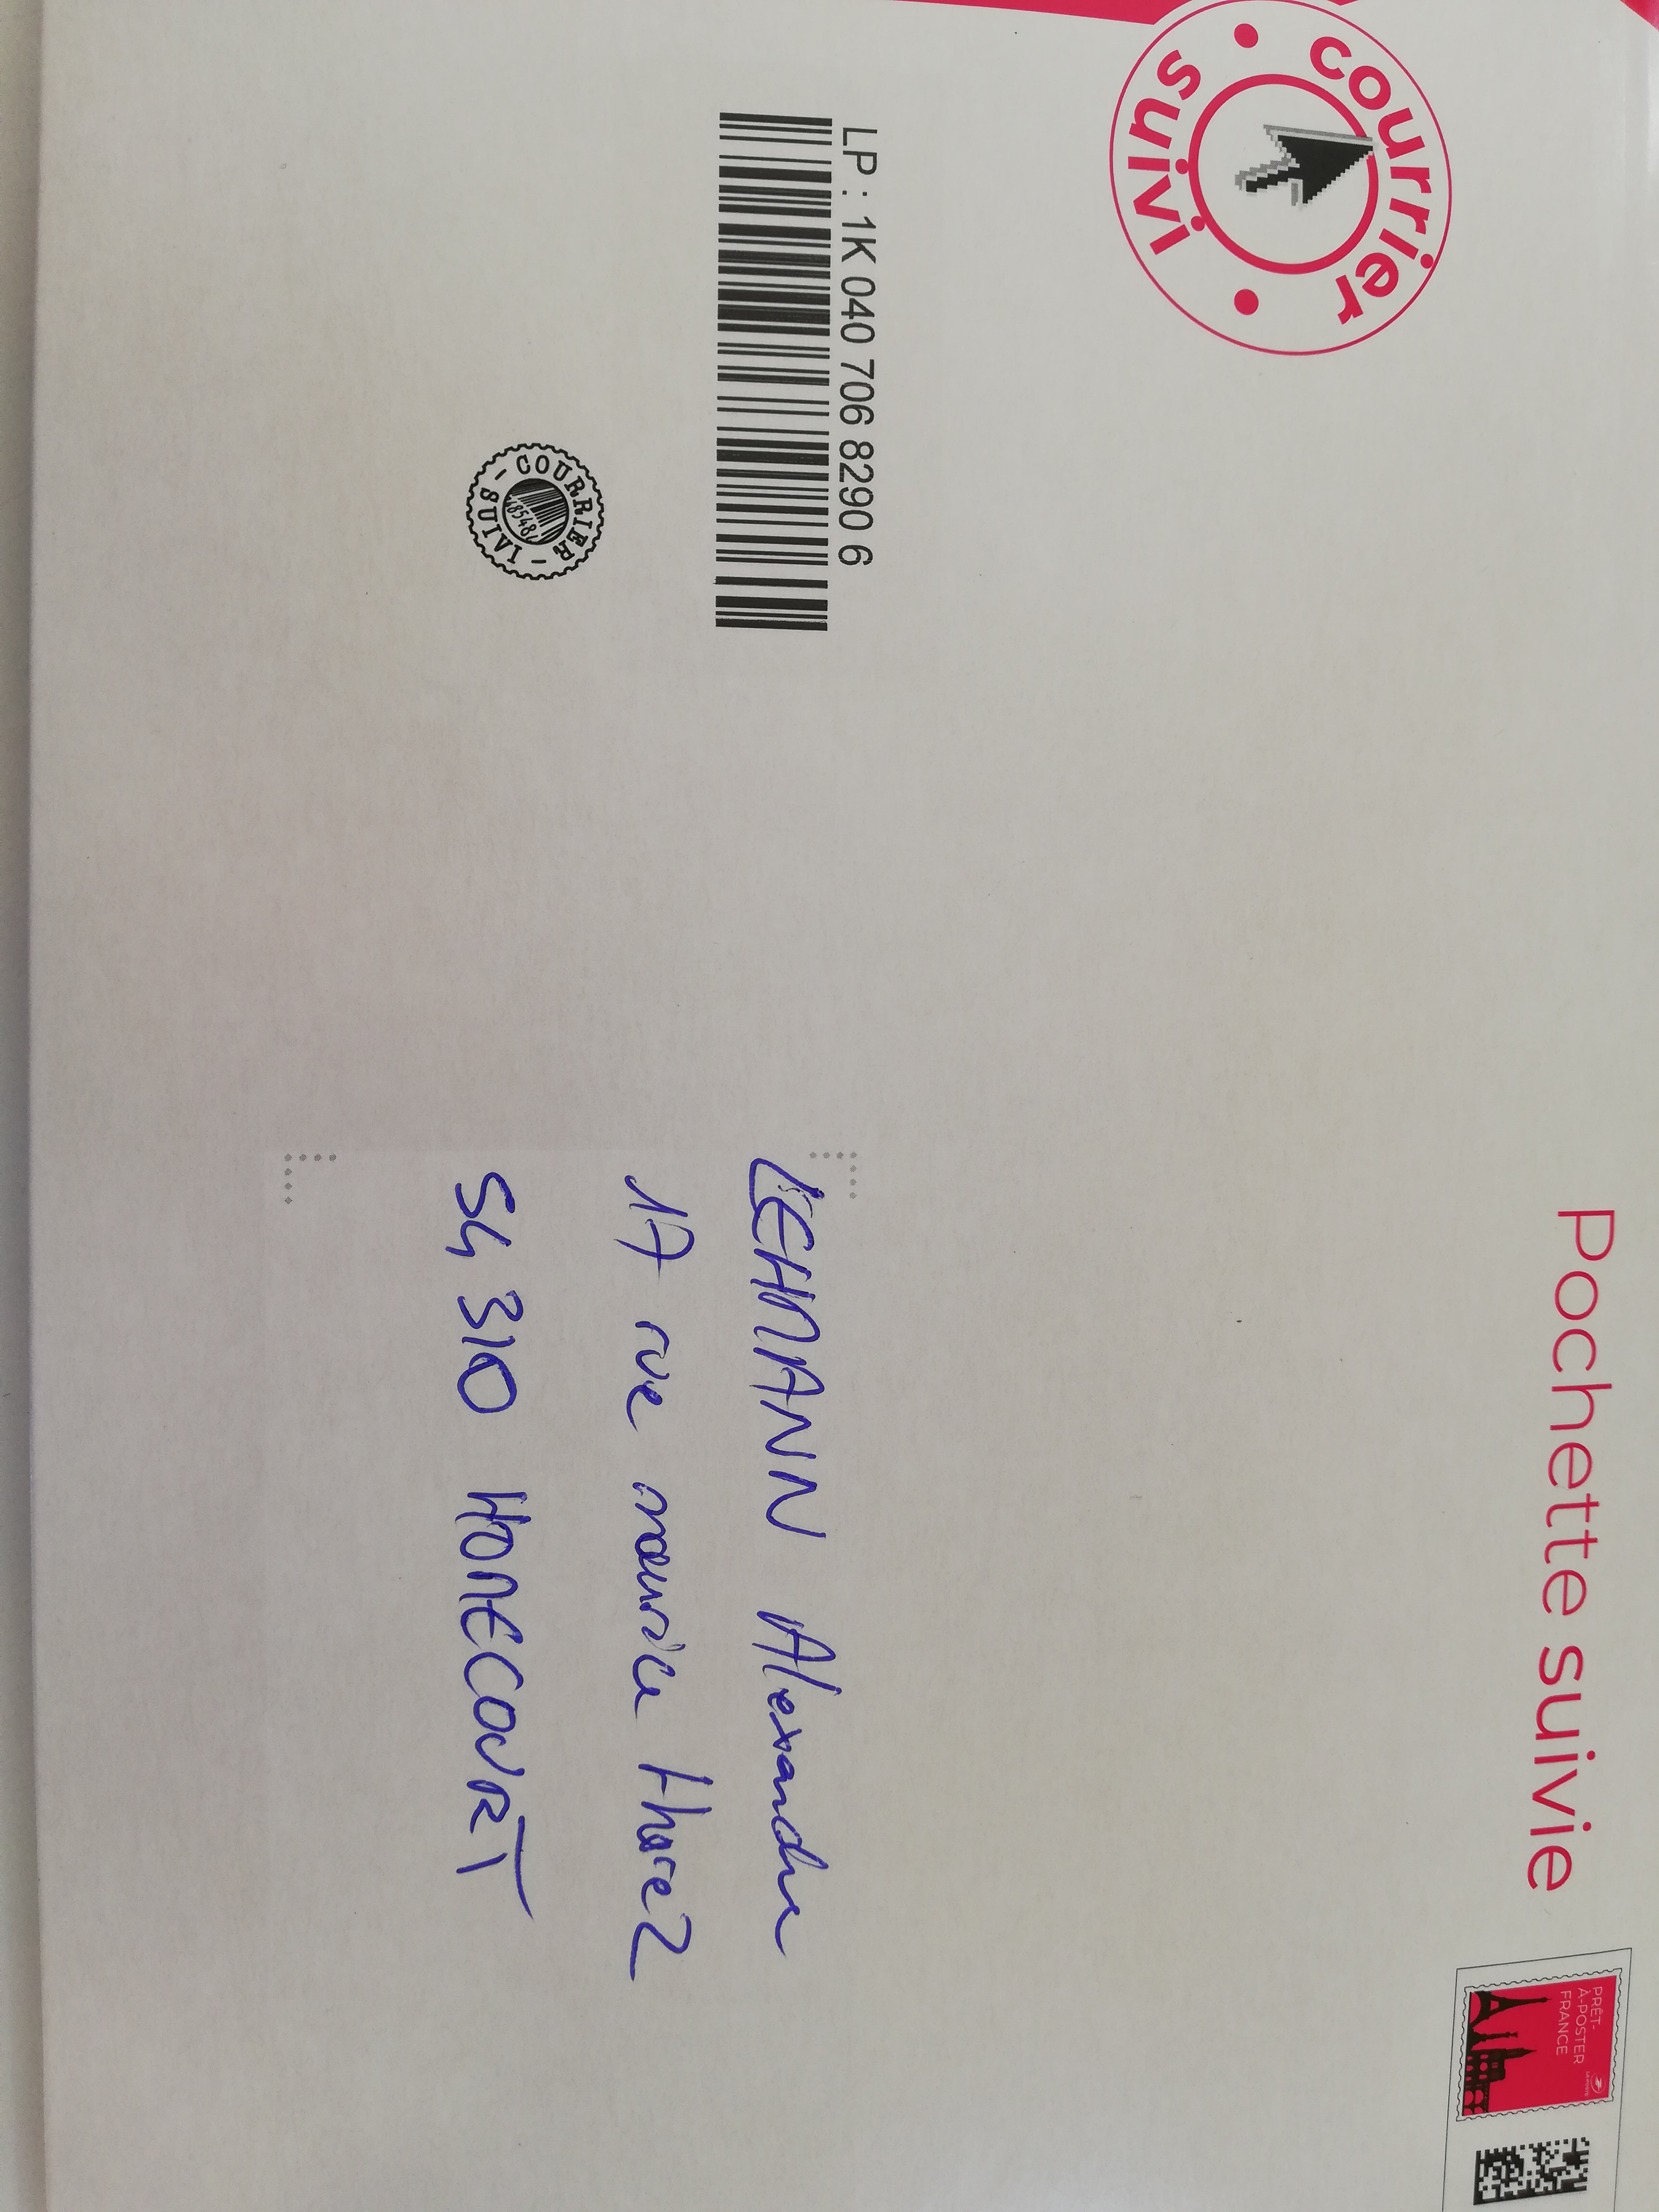 courrier
suivi
Pochette suivie
PRÊT-
À-POSTER
FRANCE
LP : 1K 040 706 8290 6
COURRIER - SUIVI -
LEHMANN Alexandre
17 rue maurice thorez
54 310 HOMECOURT